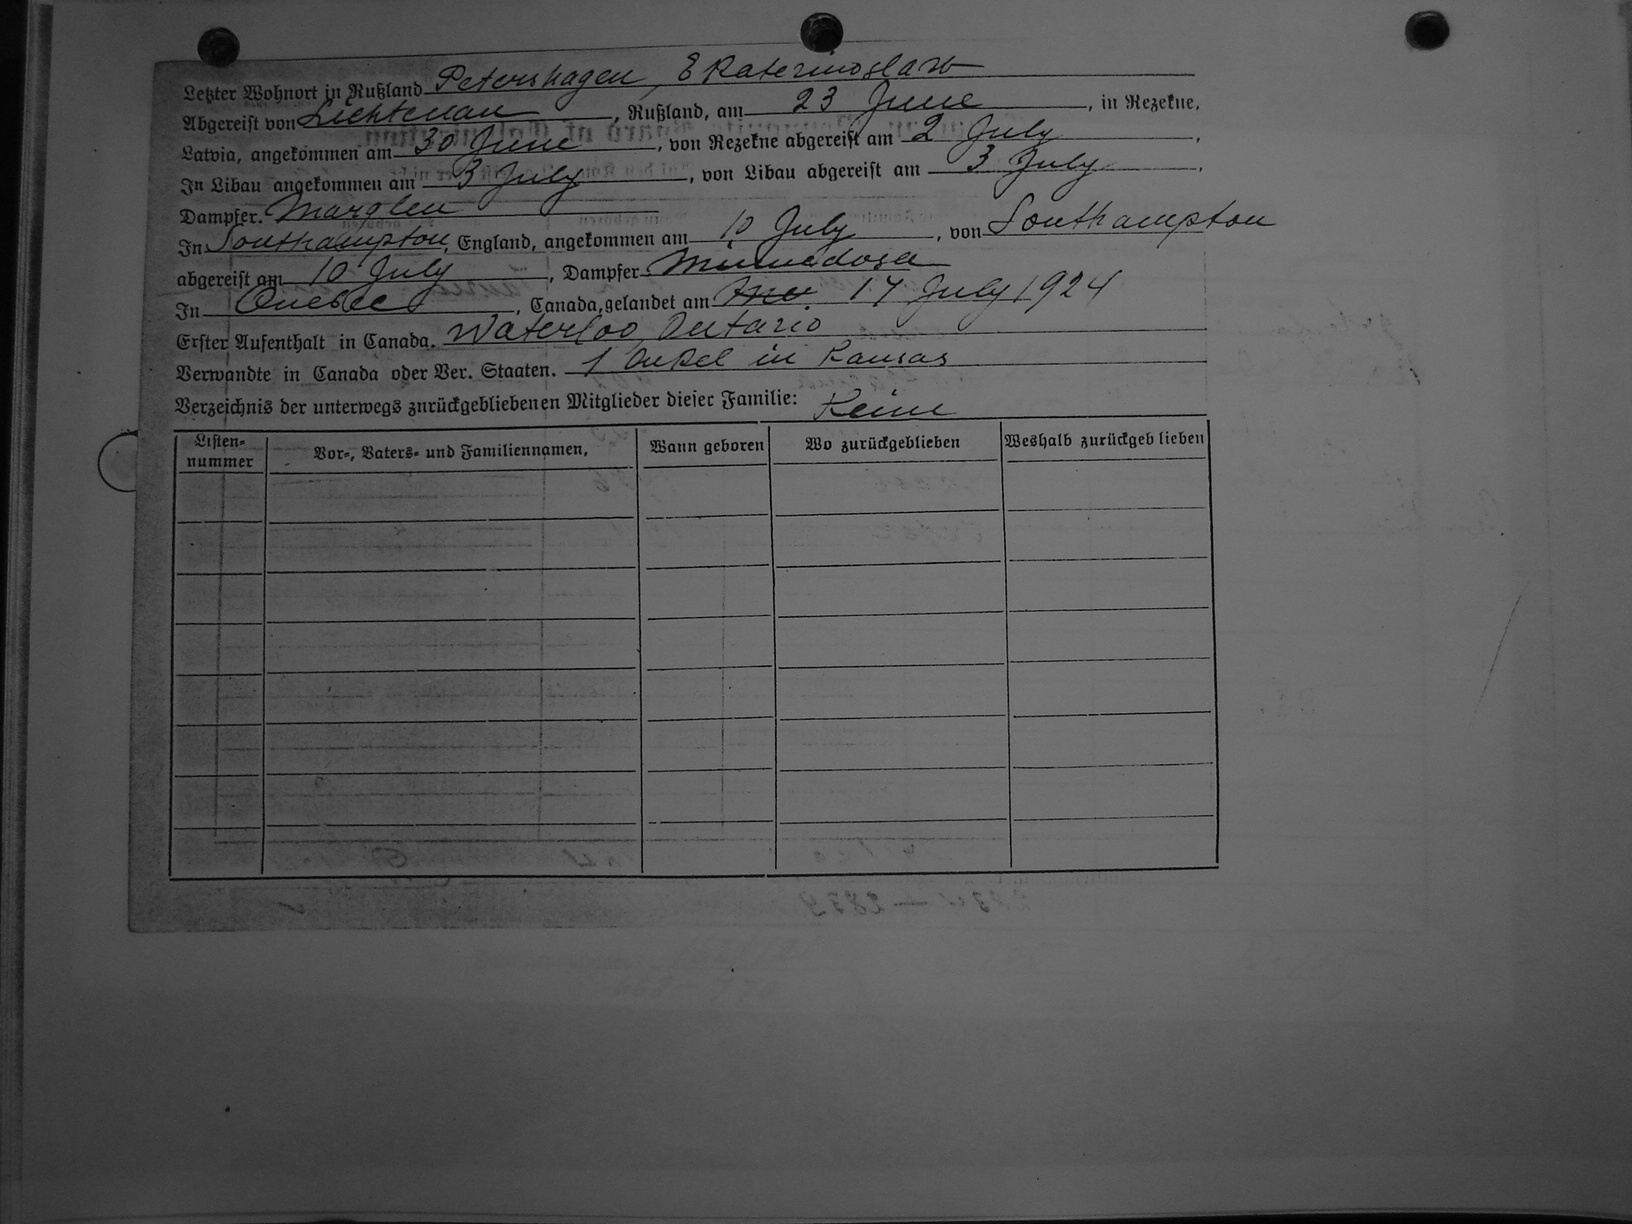 Letzter Wohnort in Rußland Petershagen, Ekaterinoslaw
Abgereist von Lichtenau, Rußland, am 23 June, in Rezekne,
Latvia, angekommen am 30 June, von Rezekne abgereist am 2 July,
In Libau angekommen am 3 July, von Libau abgereist am 3 July,
Dampfer. Marglen
In Southampton, England, angekommen am 10 July, von Southampton
abgereist am 10 July, Dampfer Minnedosa
In Quebec, Canada, gelandet am 17 July 1924
Erster Aufenthalt in Canada. Waterloo, Ontario
Verwandte in Canada oder Ver. Staaten. 1 Onkel in Kansas
Verzeichnis der unterwegs zurückgebliebenen Mitglieder dieser Familie: Keine
Listen-nummer Vor-, Vaters- und Familiennamen, Wann geboren Wo zurückgeblieben Weshalb zurückgeblieben